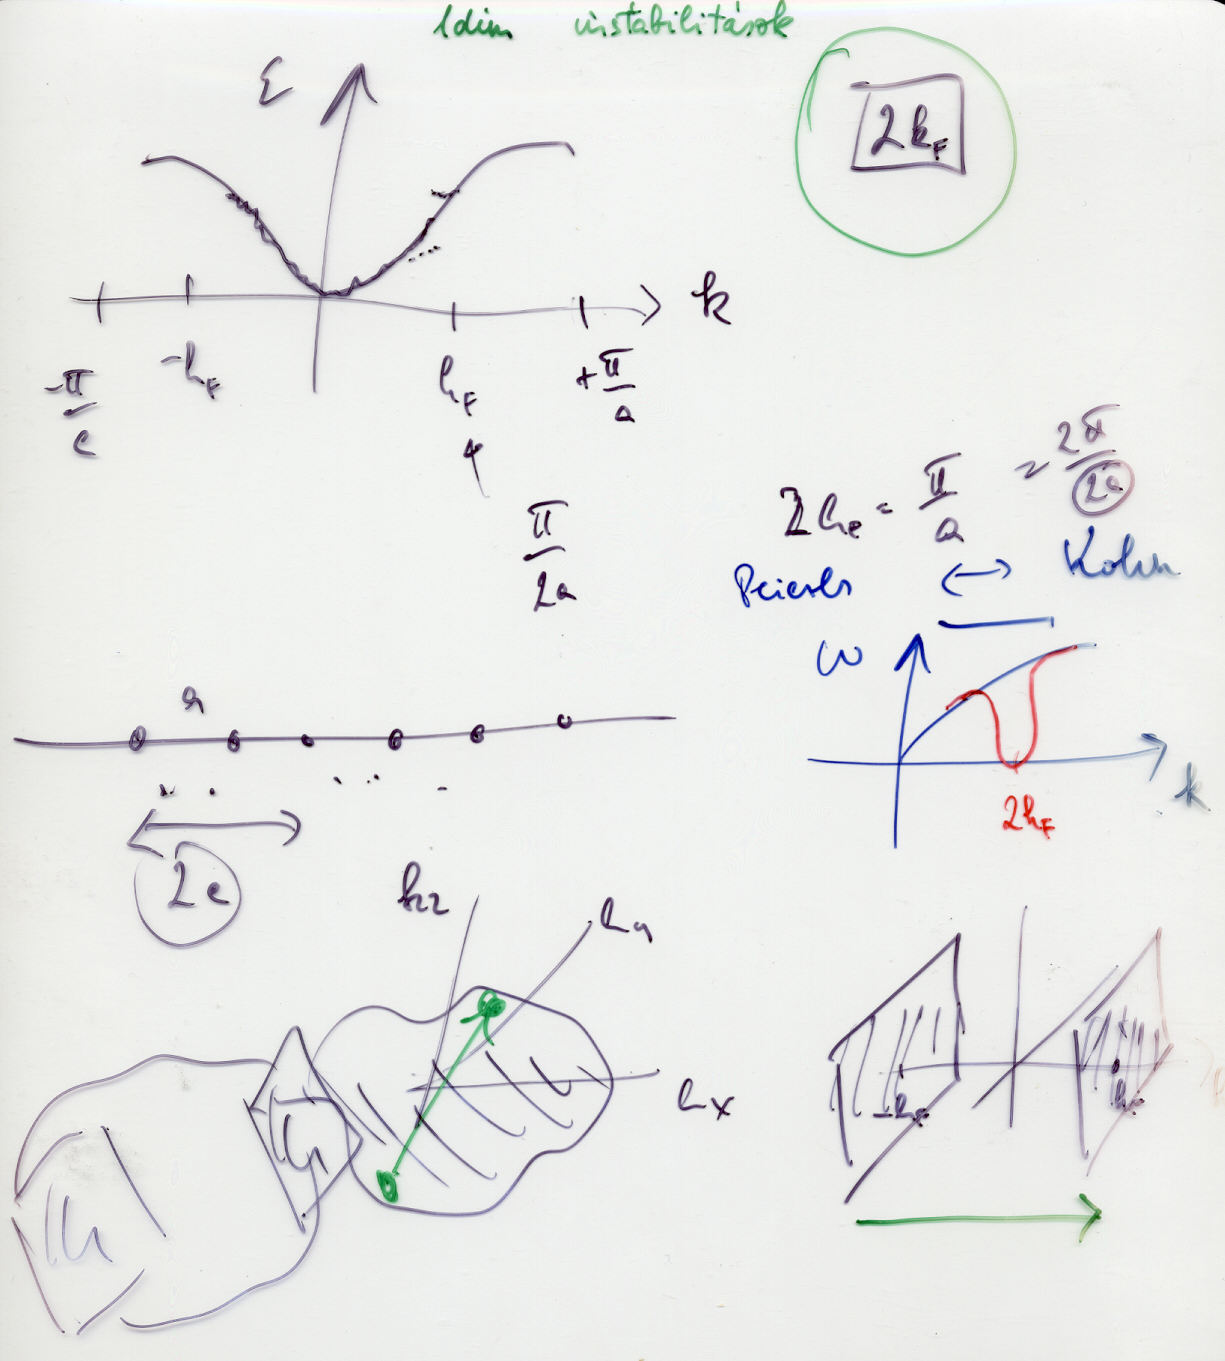 1dim instabilitások
ε
2k_F
k
-π/a
-k_F
k_F
+π/a
π/2a
2k_F = π/a = 2π/2a
Peierls ↔ Kohn
ω
a
k
2k_F
2a
k_z
k_y
k_x
-k_F
k_F